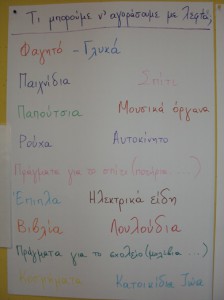 Τι μπορούμε ν' αγοράσουμε με λεφτά;
Φαγητό - Γλυκά
Παιχνίδια Σπίτι
Παπούτσια Μουσικά όργανα
Ρούχα Αυτοκίνητο
Πράγματα για το σπίτι (ποτήρια ...)
Έπιπλα Ηλεκτρικά είδη
Βιβλία Λουλούδια
Πράγματα για το σχολείο (μολύβια ...)
Κοσμήματα Κατοικίδια Ζώα